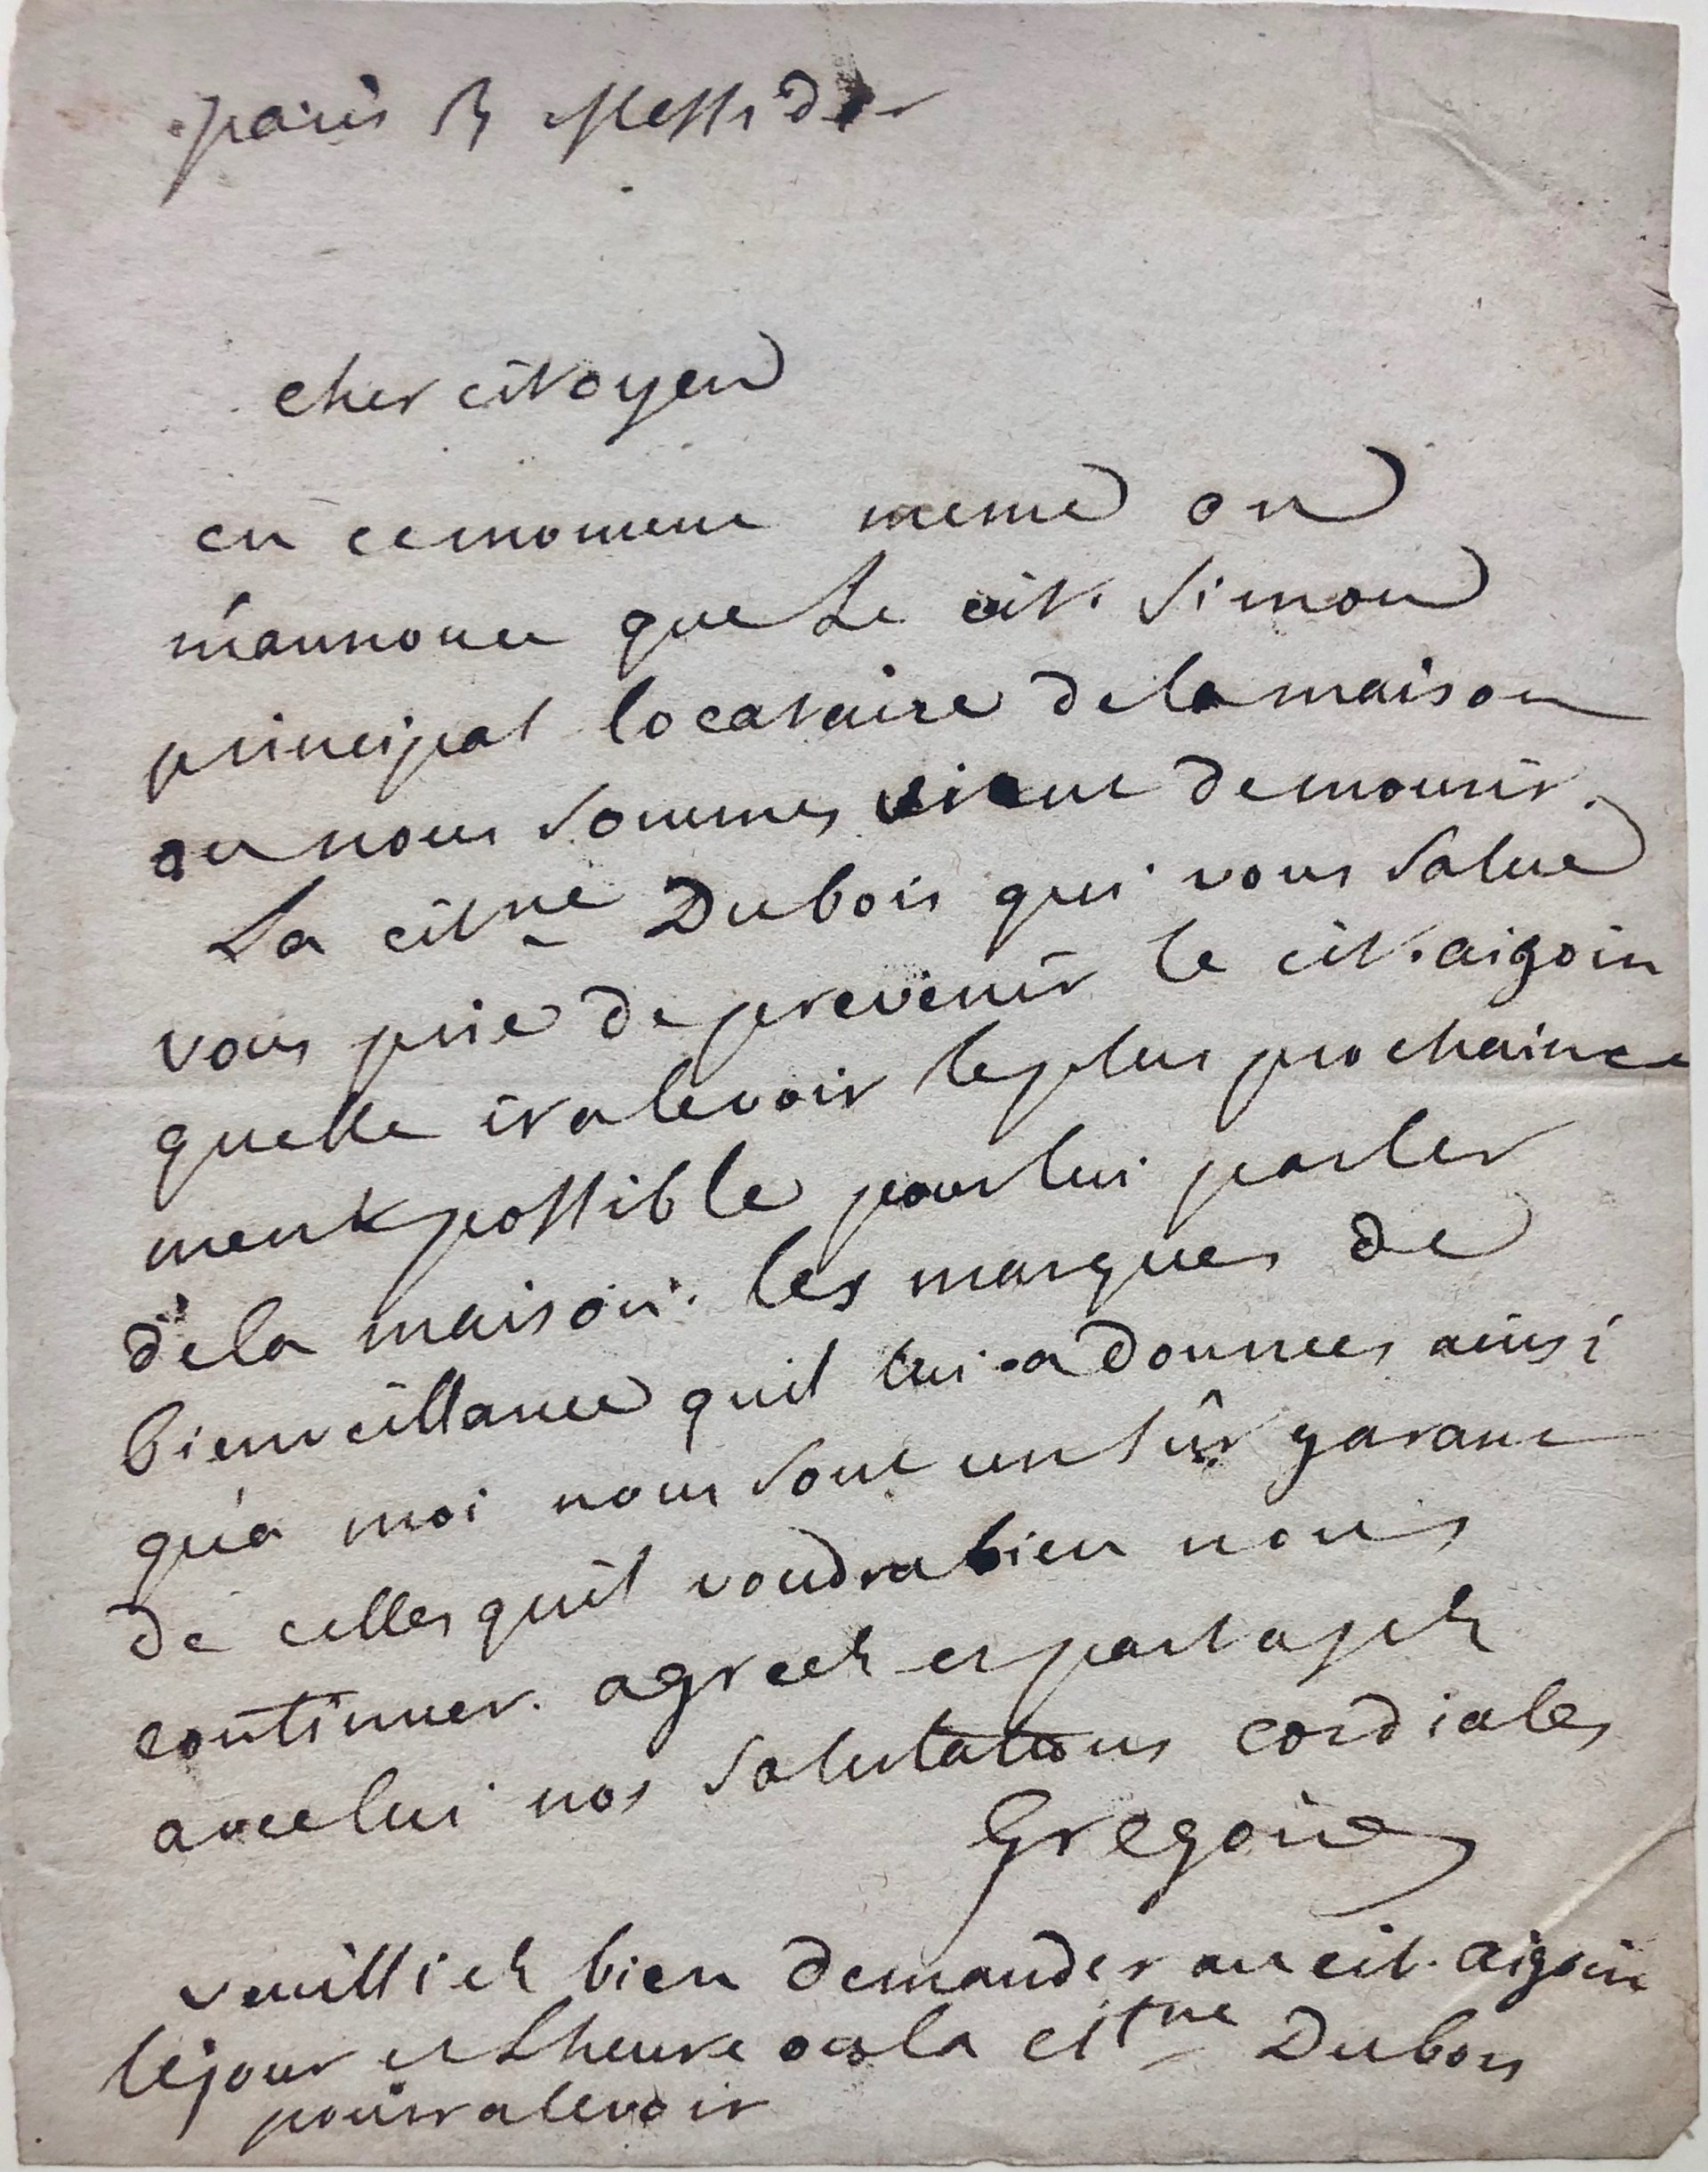 paris 13 Messidor
cher citoyen
en ce moment meme on
m'annonce que Le cit. Simon
principal locataire de la maison
ou nous sommes vient de mourir.
La citne Dubois qui vous salue
vous prie de prevenir le cit. aigoin
quelle ira le voir le plus prochaine
ment possible pour lui parler
de la maison. les marques de
bienveillance quil lui a donnees ainsi
qu'a moi nous sont un sûr garant
de celles quil voudra bien nous
continuer. agreez et partagez
avec lui nos salutations cordiales
Gregoire
veuilliez bien demander au cit. aigoin
le jour et Lheure ou la citne Dubois
pourra le voir